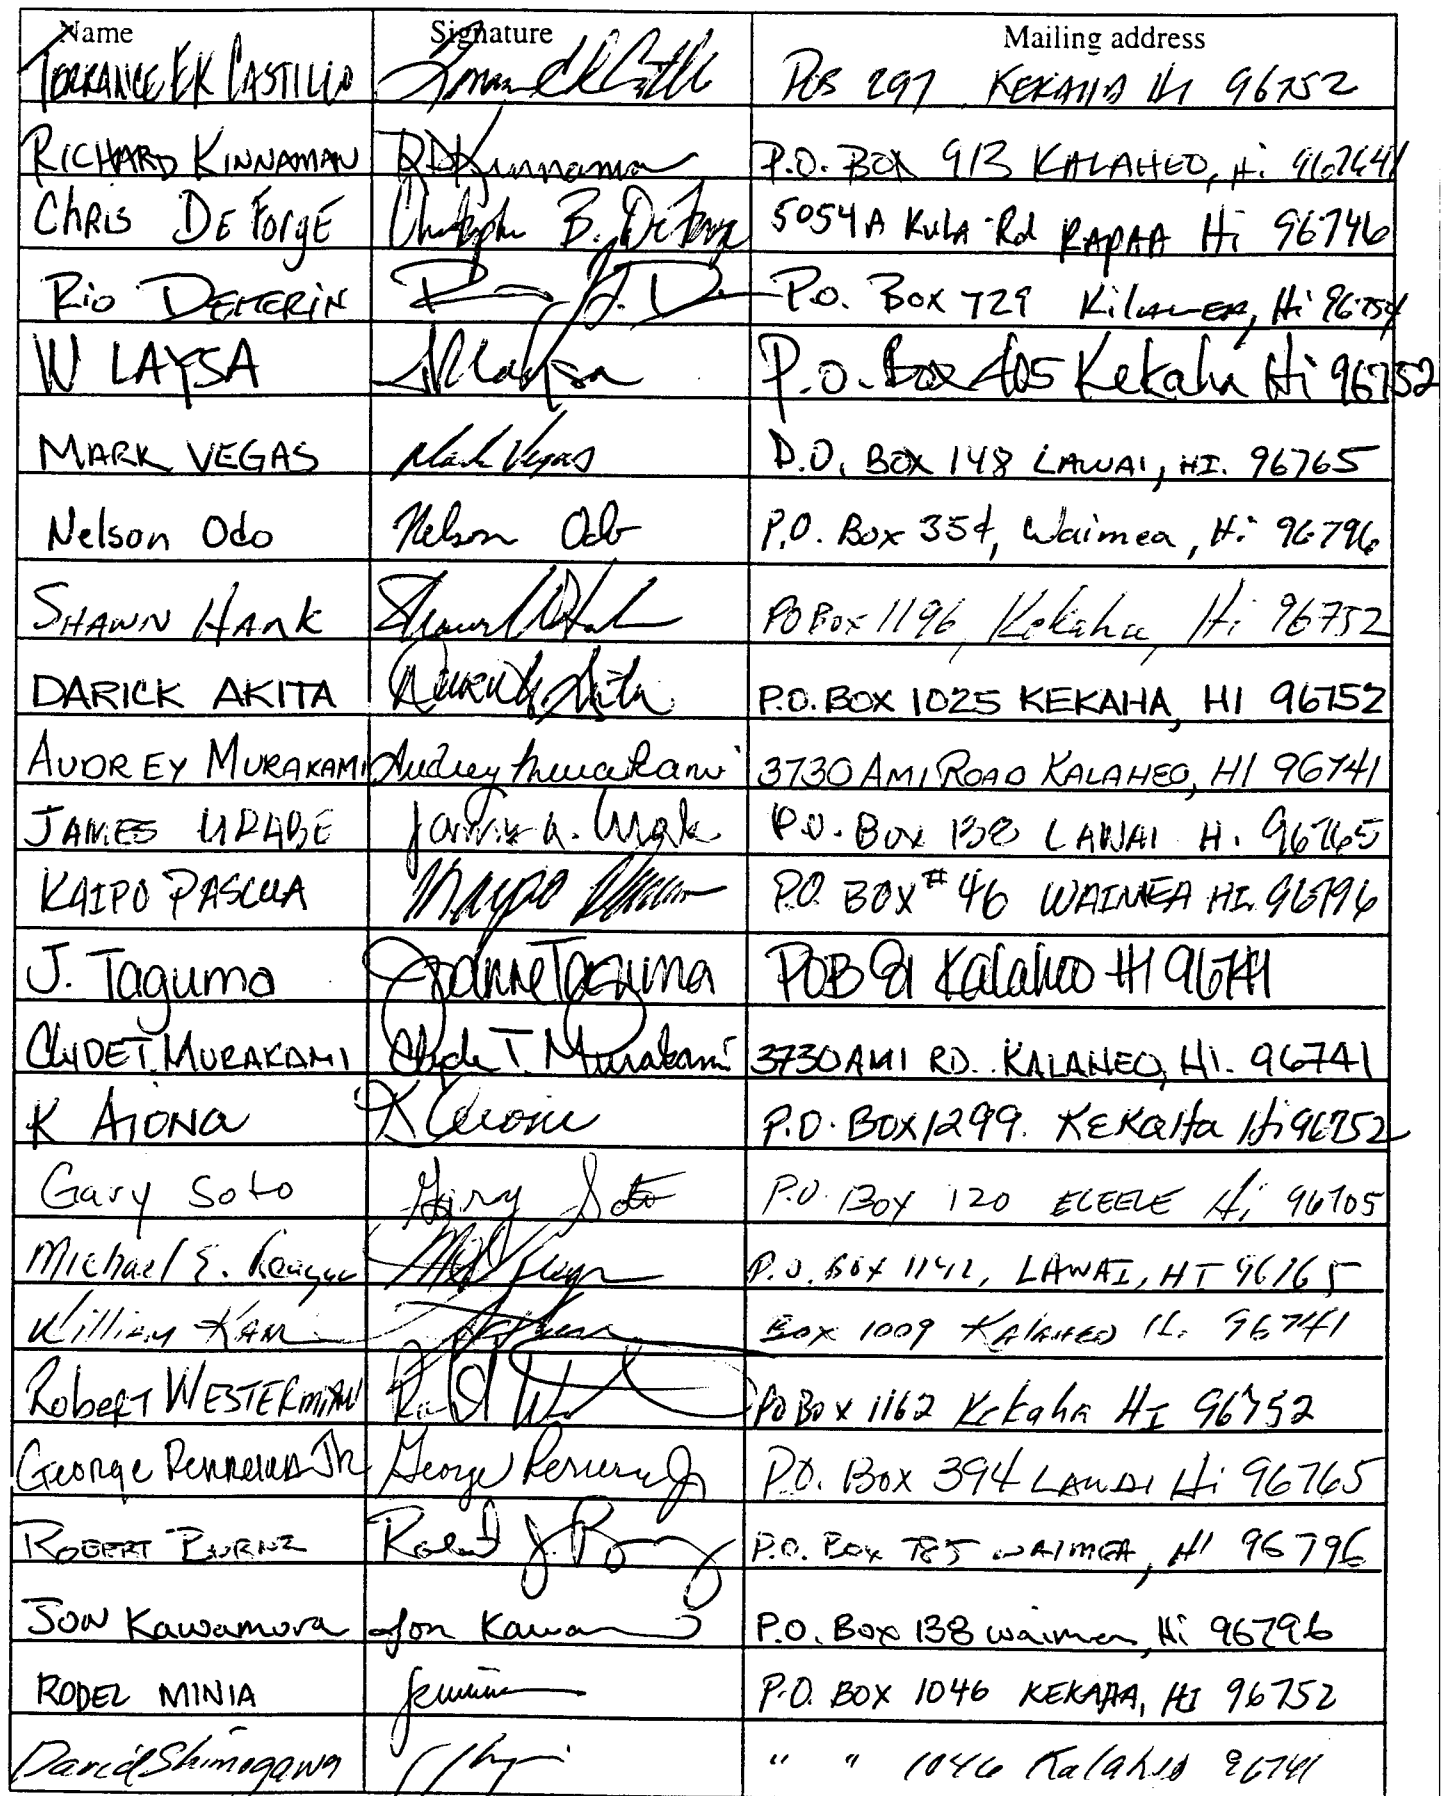 Name Signature Mailing address
TORRANCE EK CASTILLO POB 297 KEKAHA HI 96752
RICHARD KINNAMAN RDKinnaman P.O. BOX 913 KALAHEO, Hi 96741
CHRIS DE ForgE Christopher B. DeForge 5054A KULA Rd KAPAA Hi 96746
Rio DEMERIN P.O. Box 729 KilAUEA, Hi 96754
W LAYSA WLaysa P.O. Box 405 Kekaha Hi 96752
MARK VEGAS Mark Vegas P.O. BOX 148 LAWAI, HI. 96765
Nelson Odo Nelson Odo P.O. Box 354, Waimea, Hi 96796
SHAWN HANK PO Box 1196, Kekaha, Hi 96752
DARICK AKITA Darick Akita P.O. BOX 1025 KEKAHA, HI 96752
AUDREY MURAKAMI Audrey Murakami 3730 AMI ROAD KALAHEO, HI 96741
JAMES URABE James A. Urabe P.O. Box 138 LAWAI H. 96765
KAIPO PASCUA Kaipo Pascua P.O. BOX # 46 WAIMEA HI. 96796
J. Taguma Joanne Taguma POB 81 Kalaheo HI 96741
CLYDE T. MURAKAMI Clyde T. Murakami 3730 AMI RD. KALAHEO, HI. 96741
K AIONA K Aiona P.O. BOX 1299. KEKaHa Hi 96752
Gary Soto Gary Soto P.O. Box 120 ELEELE Hi 96705
Michael E. P.O. Box 1142, LAWAI, HI 96765
William KAM Box 1009 KAlAHEO H. 96741
RobERT WESTERMAN PO Box 1162 Kekaha HI 96752
George Perreira Jr George Perreira Jr P.O. Box 394 LAWAI Hi 96765
ROBERT P.O. Box 785 WAIMEA, HI 96796
JON Kawamura Jon Kawa P.O. Box 138 waimea, Hi 96796
RODEL MINIA P.O. BOX 1046 KEKAHA, HI 96752
David Shimogawa " " 1046 Kalaheo 96741